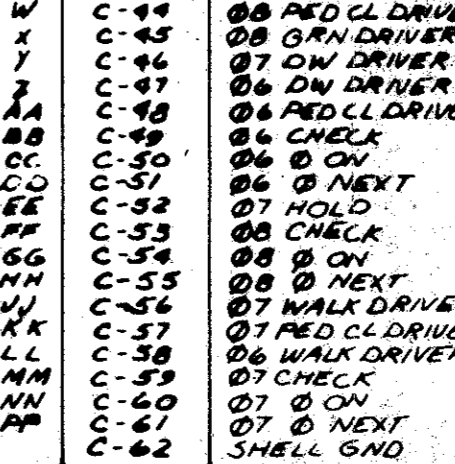 W C-44 Ø8 PED CL DRIVE
X C-45 Ø8 GRN DRIVER
Y C-46 Ø7 DW DRIVER
Z C-47 Ø6 DW DRIVER
AA C-48 Ø6 PED CL DRIVE
BB C-49 Ø6 CHECK
CC C-50 Ø6 Ø ON
DD C-51 Ø6 Ø NEXT
EE C-52 Ø7 HOLD
FF C-53 Ø8 CHECK
GG C-54 Ø8 Ø ON
HH C-55 Ø8 Ø NEXT
JJ C-56 Ø7 WALK DRIVE
KK C-57 Ø7 PED CL DRIVE
LL C-58 Ø6 WALK DRIVER
MM C-59 Ø7 CHECK
NN C-60 Ø7 Ø ON
PP C-61 Ø7 Ø NEXT
C-62 SHELL GND